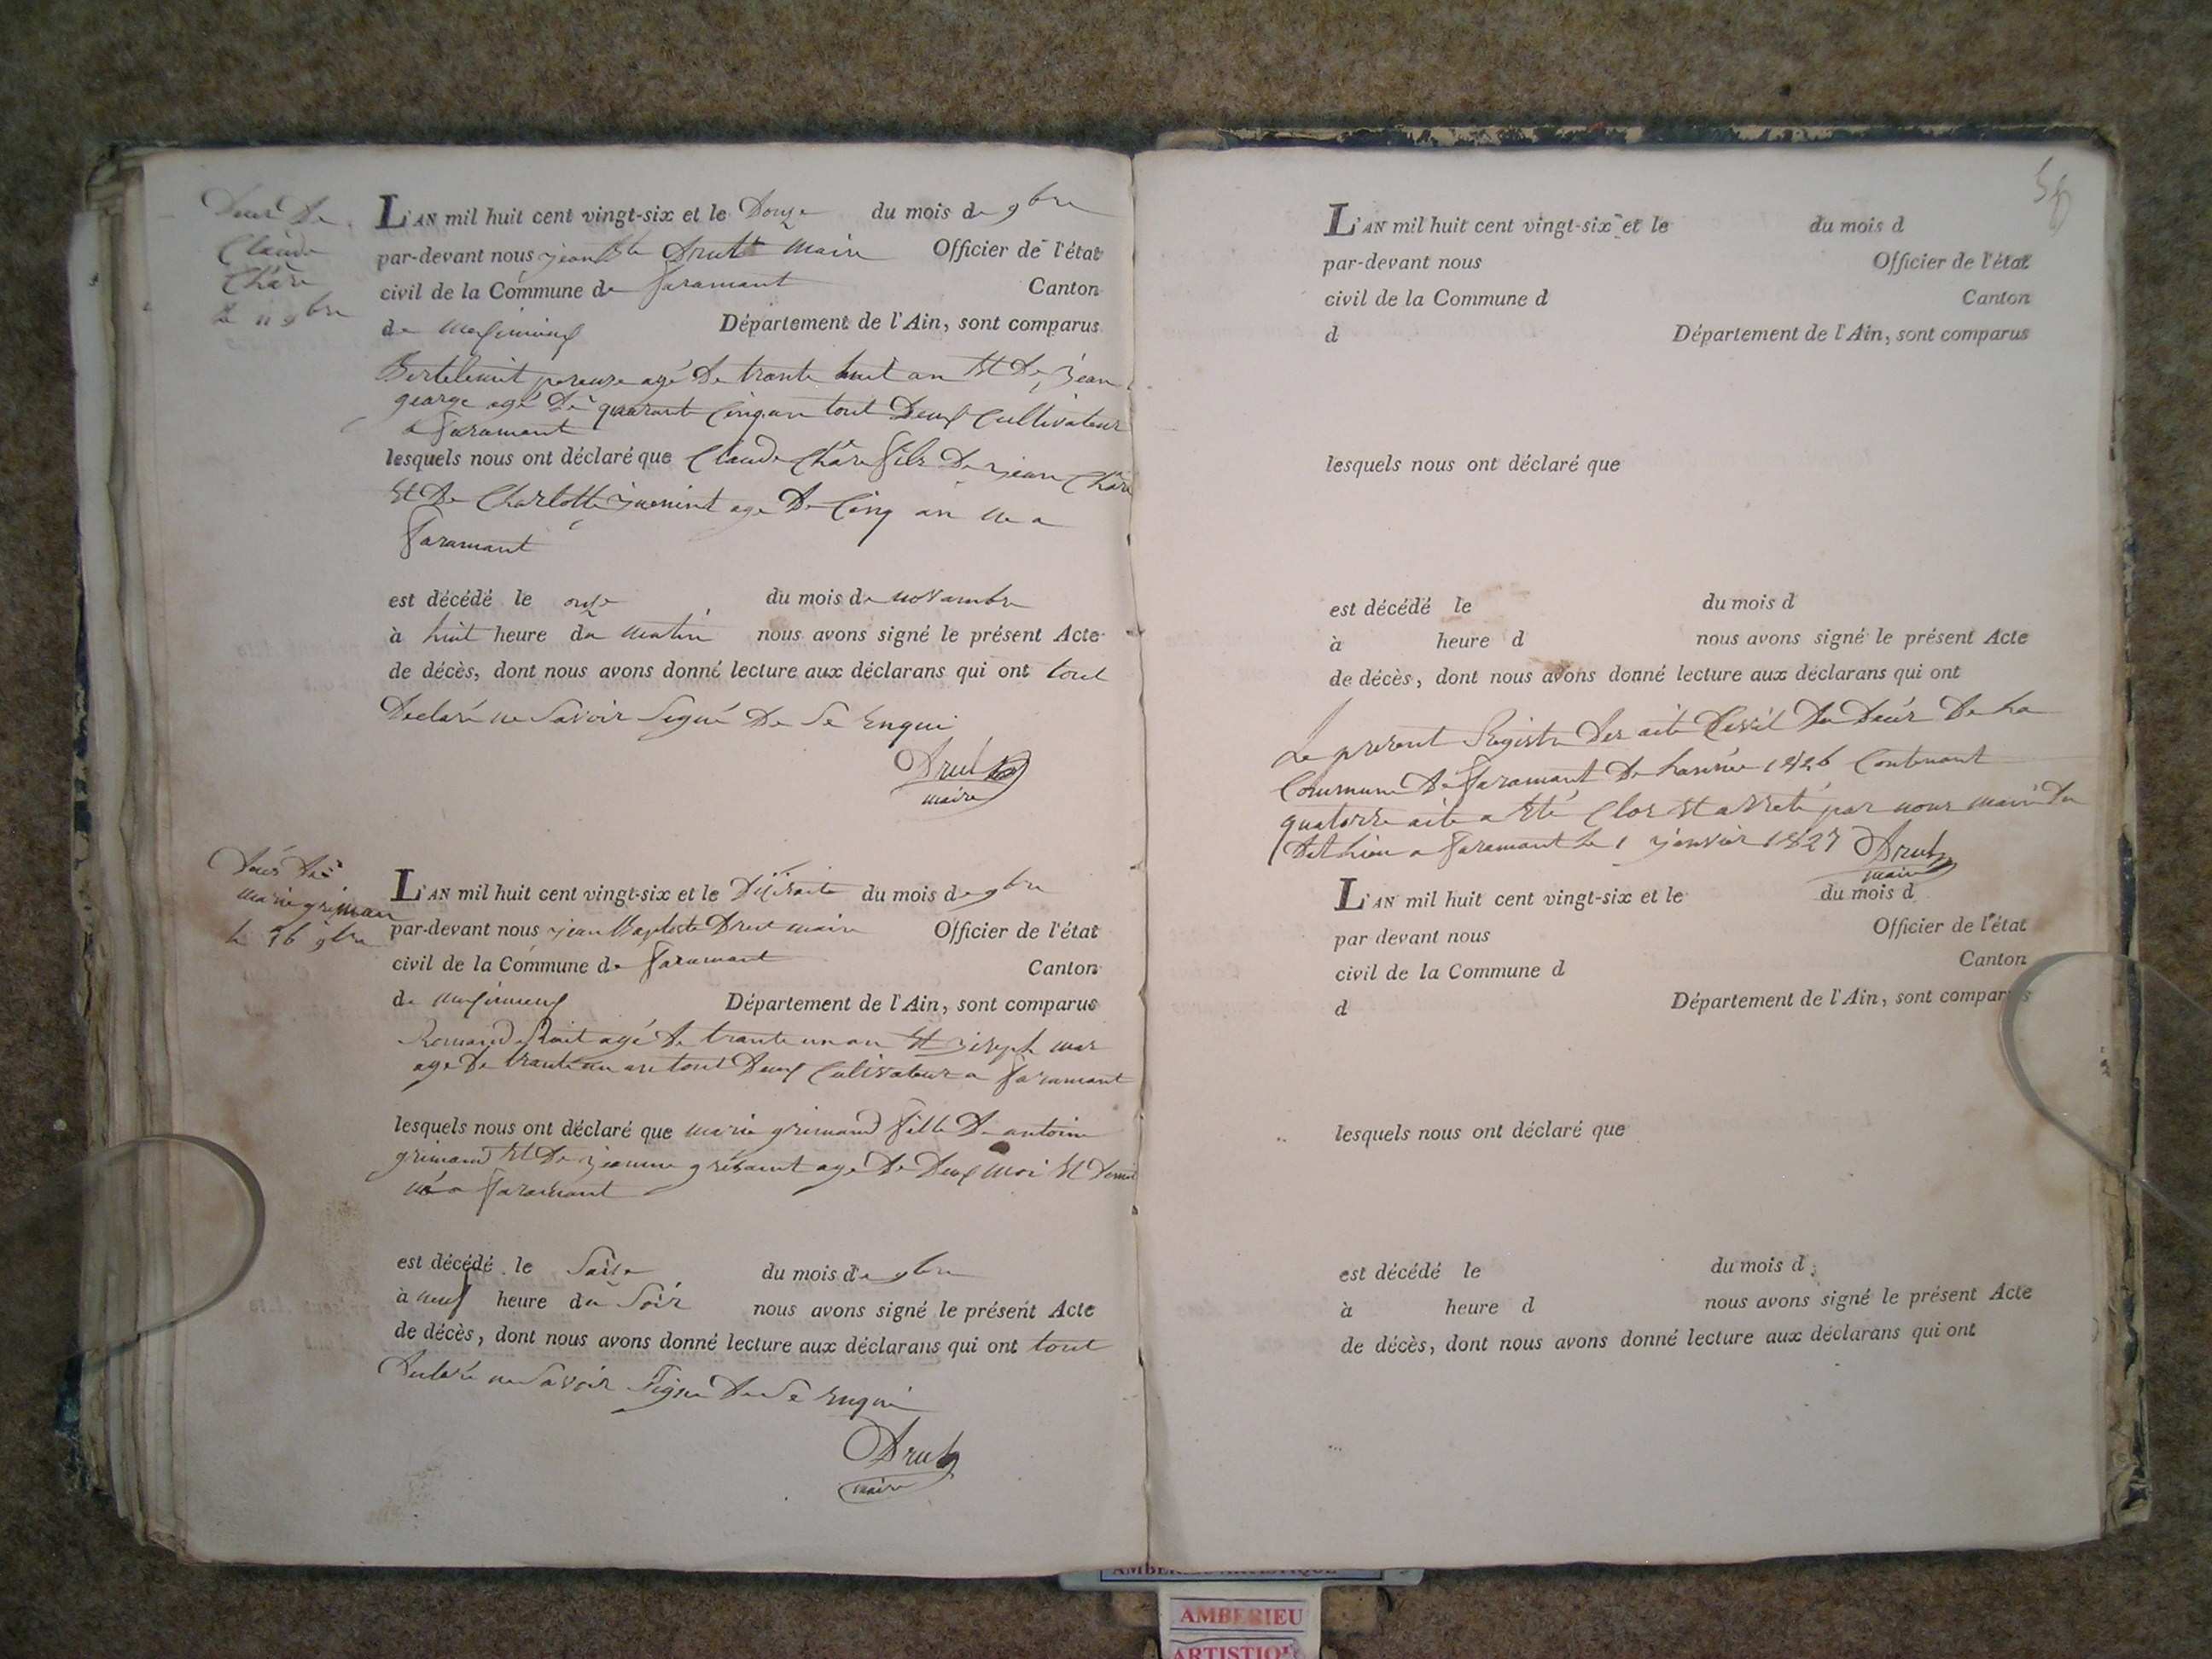 Claude
Chãre
le 11 9bre
L'AN mil huit cent vingt-six et le Douze du mois de 9bre
par-devant nous jean Bte Drut maire Officier de l'état
civil de la Commune de faramant Canton
de meximieux Département de l'Ain, sont comparus
agé De trante huit an Et De jean
george agé De quarante Cinq an tout Deux Cultivateur
a faramant
lesquels nous ont déclaré que Claude Chãre fils De jean Chãre
Et De Charlotte age De Cinq an ne a
faramant
est décédé le onze du mois de novambre
à huit heure du matin nous avons signé le présent Acte
de décès, dont nous avons donné lecture aux déclarans qui ont tout
Declaré ne Savoir Signé De Se Enqui
Drut
maire
marie griman
le 16 9bre
L'AN mil huit cent vingt-six et le du mois de 9bre
par-devant nous jean Baptiste Drut maire Officier de l'état
civil de la Commune de faramant Canton
de meximieux Département de l'Ain, sont comparus
Romand agé De trante un an Et joseph mar
age De trante un an tout Deux Culivateur a faramant
lesquels nous ont déclaré que marie grimand fille De antoine
grimand Et De jeanne agé De Deux moi Et Demi
né a faramant
est décédé le Saise du mois de 9bre
à neuf heure du Soir nous avons signé le présent Acte
de décès, dont nous avons donné lecture aux déclarans qui ont tout
Declaré ne Savoir Signé De Se Enqui
Drut
maire
L'AN mil huit cent vingt-six et le du mois d
par-devant nous Officier de l'état
civil de la Commune d Canton
d Département de l'Ain, sont comparus
lesquels nous ont déclaré que
est décédé le du mois d
à heure d nous avons signé le présent Acte
de décès, dont nous avons donné lecture aux déclarans qui ont
Le present Registre Des aite Civil De Decés De La
Commune De faramant De Lannée 1826 Contenant
quatorse aite a Eté Clos Et arreté par nous maire Du
Dit Lieu a faramant Le 1 janvier 1827 Drut
maire
L'AN mil huit cent vingt-six et le du mois d
par devant nous Officier de l'état
civil de la Commune d Canton
d Département de l'Ain, sont comparus
lesquels nous ont déclaré que
est décédé le du mois d
à heure d nous avons signé le présent Acte
de décès, dont nous avons donné lecture aux déclarans qui ont
AMBERIEU
ARTISTIQUE